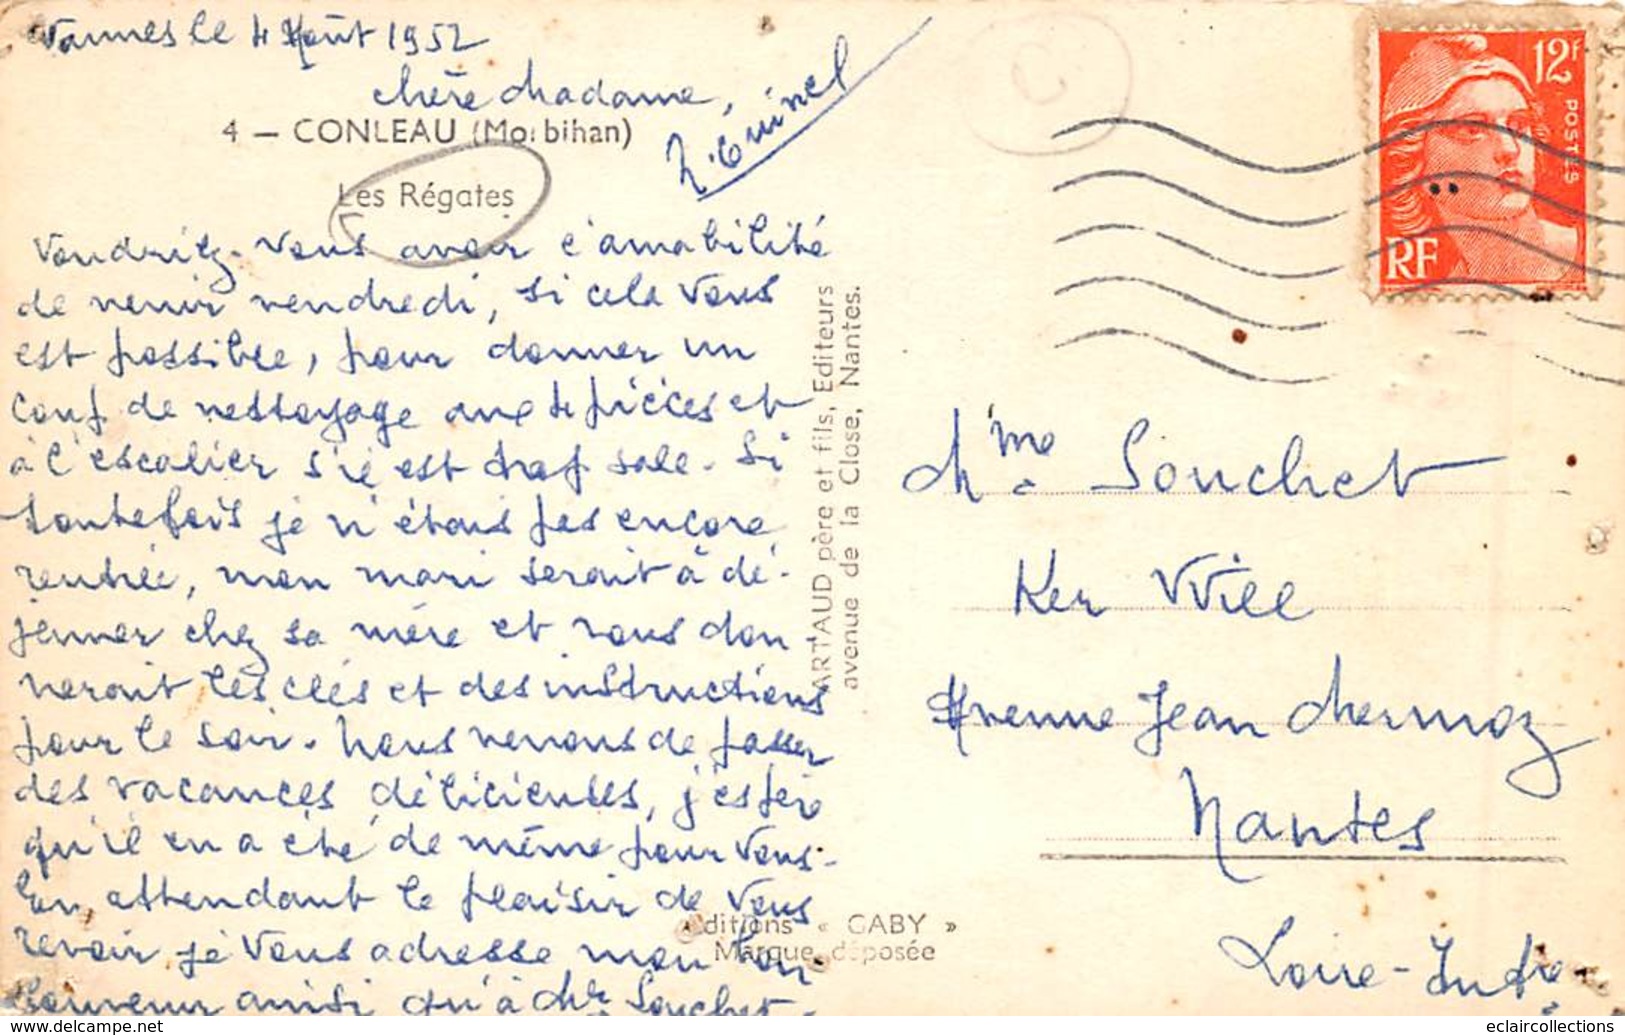 Vannes le 4 Août 1952
chère Madame,
4 — CONLEAU (Morbihan)
Les Régates
Voudriez-vous avoir l'amabilité
de venir vendredi, si cela vous
est possible, pour donner un
coup de nettoyage aux 4 pièces et
à l'escalier s'il est trop sale. Si
toutefois je n'étais pas encore
rentrée, mon mari serait à dé-
jeuner chez sa mère et vous don-
nerait les clés et des instructions
pour le soir. Nous venons de passer
des vacances délicieuses, j'espère
qu'il en a été de même pour vous.
En attendant le plaisir de vous
revoir je vous adresse mon bon
souvenir ainsi qu'à Mr Souchet.
ARTAUD père et fils, Editeurs
avenue de la Close, Nantes.
Editions « GABY »
Marque déposée
12F
POSTES
RF
Mme Souchet
Ker Will
Avenue Jean Mermoz
Nantes
Loire-Infre
eclaircollections